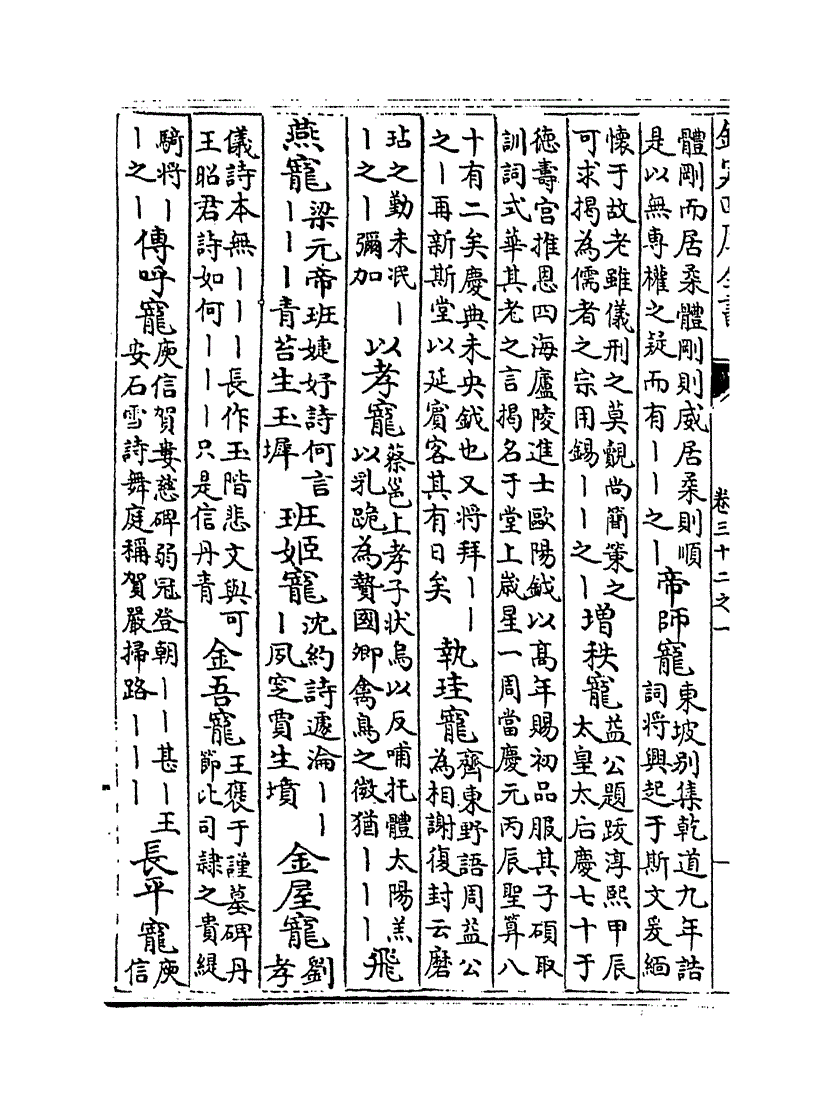 欽定四庫全書 卷三十二之一
體剛而居柔體剛則威居柔則順
是以無專權之疑而有——之—
帝師寵
東坡别集乾道九年誥
詞將興起于斯文爰緬
懷于故老雖儀刑之莫覿尚簡策之
可求揭為儒者之宗用錫——之—
增秩寵
益公題跋淳熙甲辰
太皇太后慶七十于
德壽宫推恩四海廬陵進士歐陽鉞以髙年賜初品服其子碩取
訓詞式華其老之言揭名于堂上嵗星一周當慶元丙辰聖算八
十有二矣慶典未央鉞也又将拜——
之—再新斯堂以延賓客其有日矣
執珪寵
齊東野語周益公
為相謝復封云磨
玷之勤未泯—
—之—彌加
以孝寵
蔡邕上孝子狀烏以反哺托體太陽羔
以乳跪為贄國卿禽鳥之微猶———
飛燕寵
梁元帝班婕妤詩何言
———青苔生玉墀
班姬寵
沈約詩遽淪——
—夙窆賈生墳
金屋寵
劉
孝
儀詩本無———長作玉階悲文與可
王昭君詩如何———只是信丹青
金吾寵
王褒于謹墓碑丹
節比司隷之貴緹
騎将—
—之—
傳呼寵
庾信賀婁慈碑弱冠登朝——甚—王
安石雪詩舞庭稱賀嚴掃路———
長平寵
庾
信